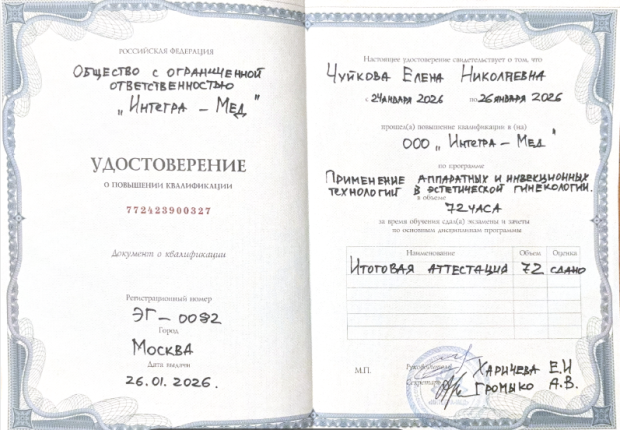 РОССИЙСКАЯ ФЕДЕРАЦИЯ
ОБЩЕСТВО С ОГРАНИЧЕННОЙ
ОТВЕТСТВЕННОСТЬЮ
„ИНТЕГРА – МЕД"
УДОСТОВЕРЕНИЕ
О ПОВЫШЕНИИ КВАЛИФИКАЦИИ
772423900327
Документ о квалификации
Регистрационный номер
ЭГ – 0092
Город
МОСКВА
Дата выдачи
26.01.2026.
Настоящее удостоверение свидетельствует о том, что
ЧУЙКОВА ЕЛЕНА НИКОЛАЕВНА
с 24 ЯНВАРЯ 2026 по 26 ЯНВАРЯ 2026
прошел(а) повышение квалификации в (на)
ООО „ИНТЕГРА – МЕД"
по программе
ПРИМЕНЕНИЕ АППАРАТНЫХ И ИНЪЕКЦИОННЫХ
ТЕХНОЛОГИЙ В ЭСТЕТИЧЕСКОЙ ГИНЕКОЛОГИИ.
в объеме
72 ЧАСА
за время обучения сдал(а) экзамены и зачеты
по основным дисциплинам программы
Наименование Объем Оценка
ИТОГОВАЯ АТТЕСТАЦИЯ 72 СДАНО
М.П.
Руководитель ХАРИЧЕВА Е.И
Секретарь ГРОМЫКО А.В.